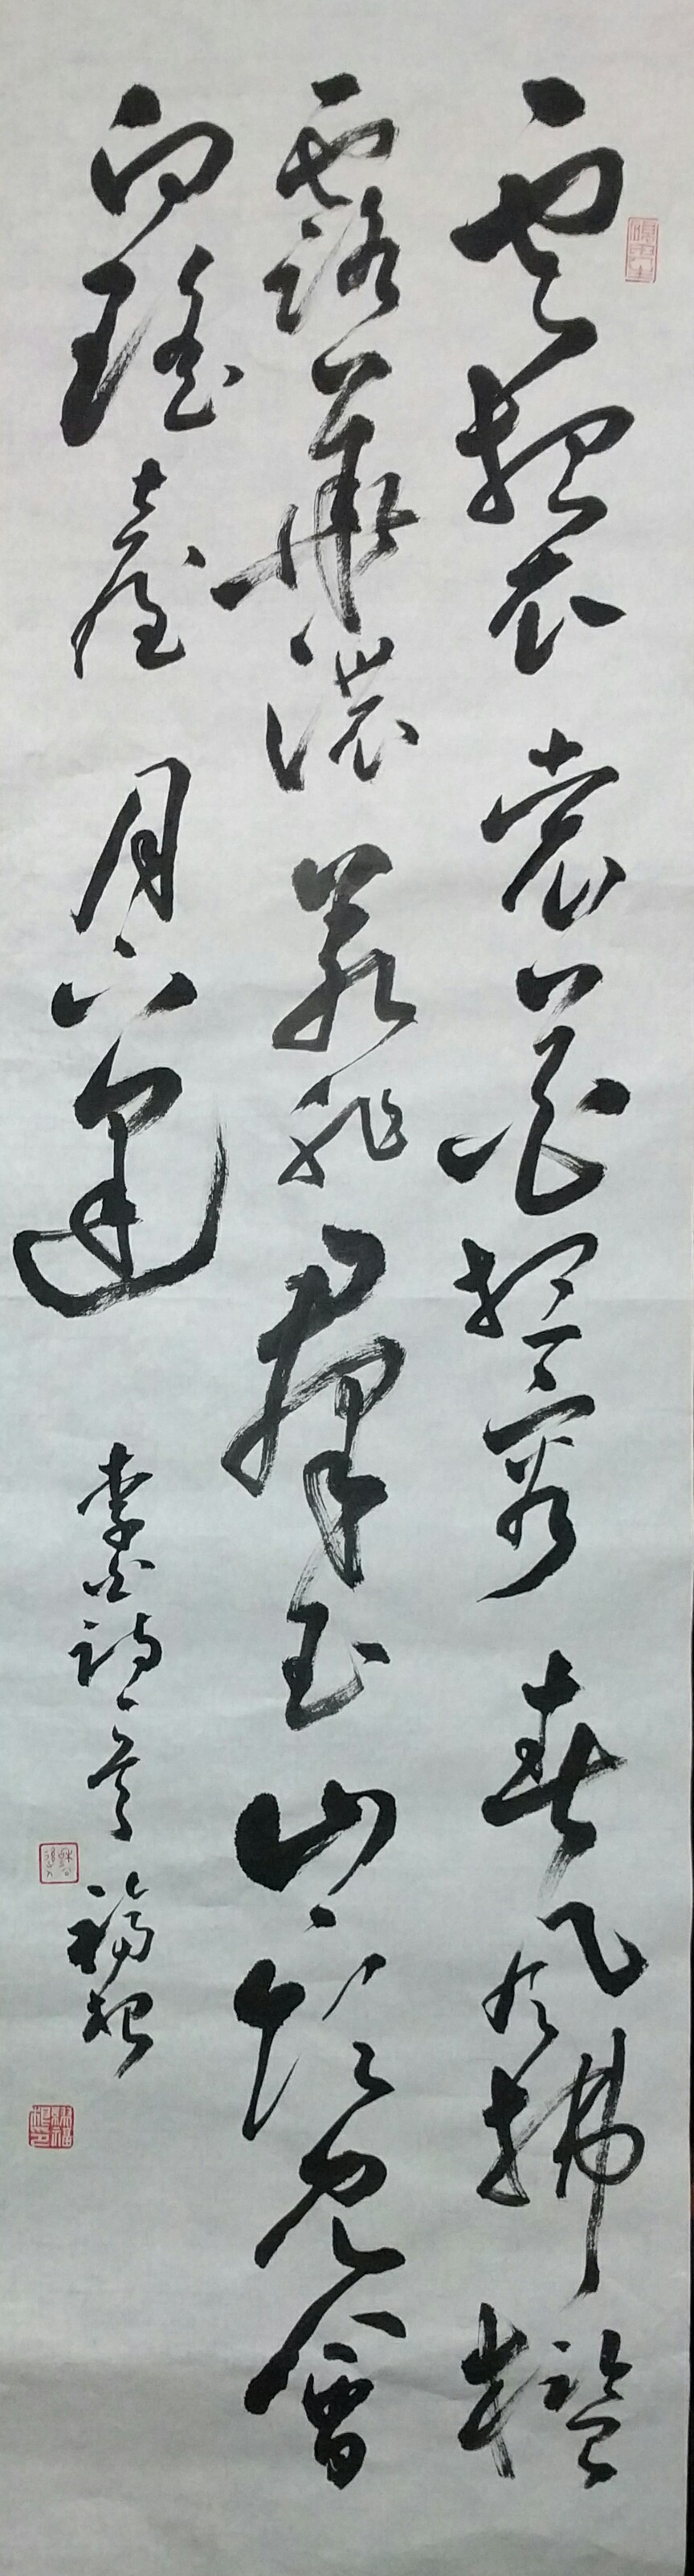 雲想衣裳花想容春風拂檻
露華濃若非羣玉山頭見會
向瑤臺月下逢 李白詩一首 福